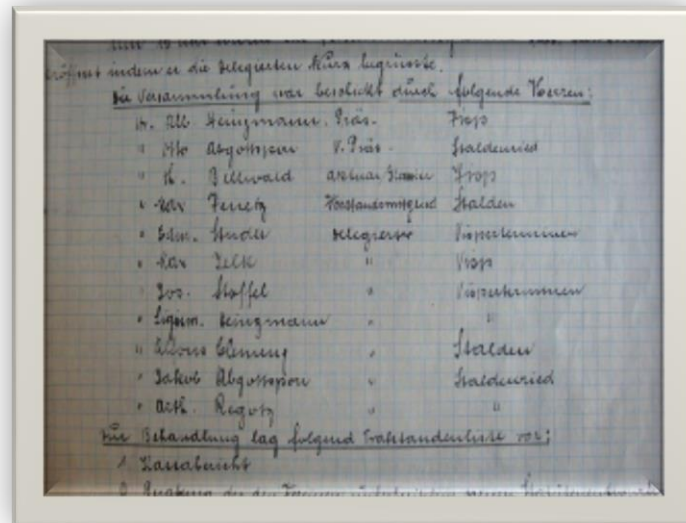 eröffnet indem er die Delegierten kurz begrüsste.
Die Versammlung war beschickt durch folgende Herren:
Hr. Alb. Heinzmann. Präs. Visp
" Otto Abgottspon V. Präs. Staldenried
" H. Bellwald Aktuar/Kassier Visp
" Max Venetz Vorstandsmitglied Stalden
" Edm. Studer Delegierter Visperterminen
" Max Zelk " Visp
" Jos. Stoffel " Visperterminen
" Sigism. Heinzmann " "
" Clemenz " Stalden
" Jakob Abgottspon " Staldenried
" Arth. Regotz " "
Zur Behandlung lag folgend Traktandenliste vor:
1. Kassabericht